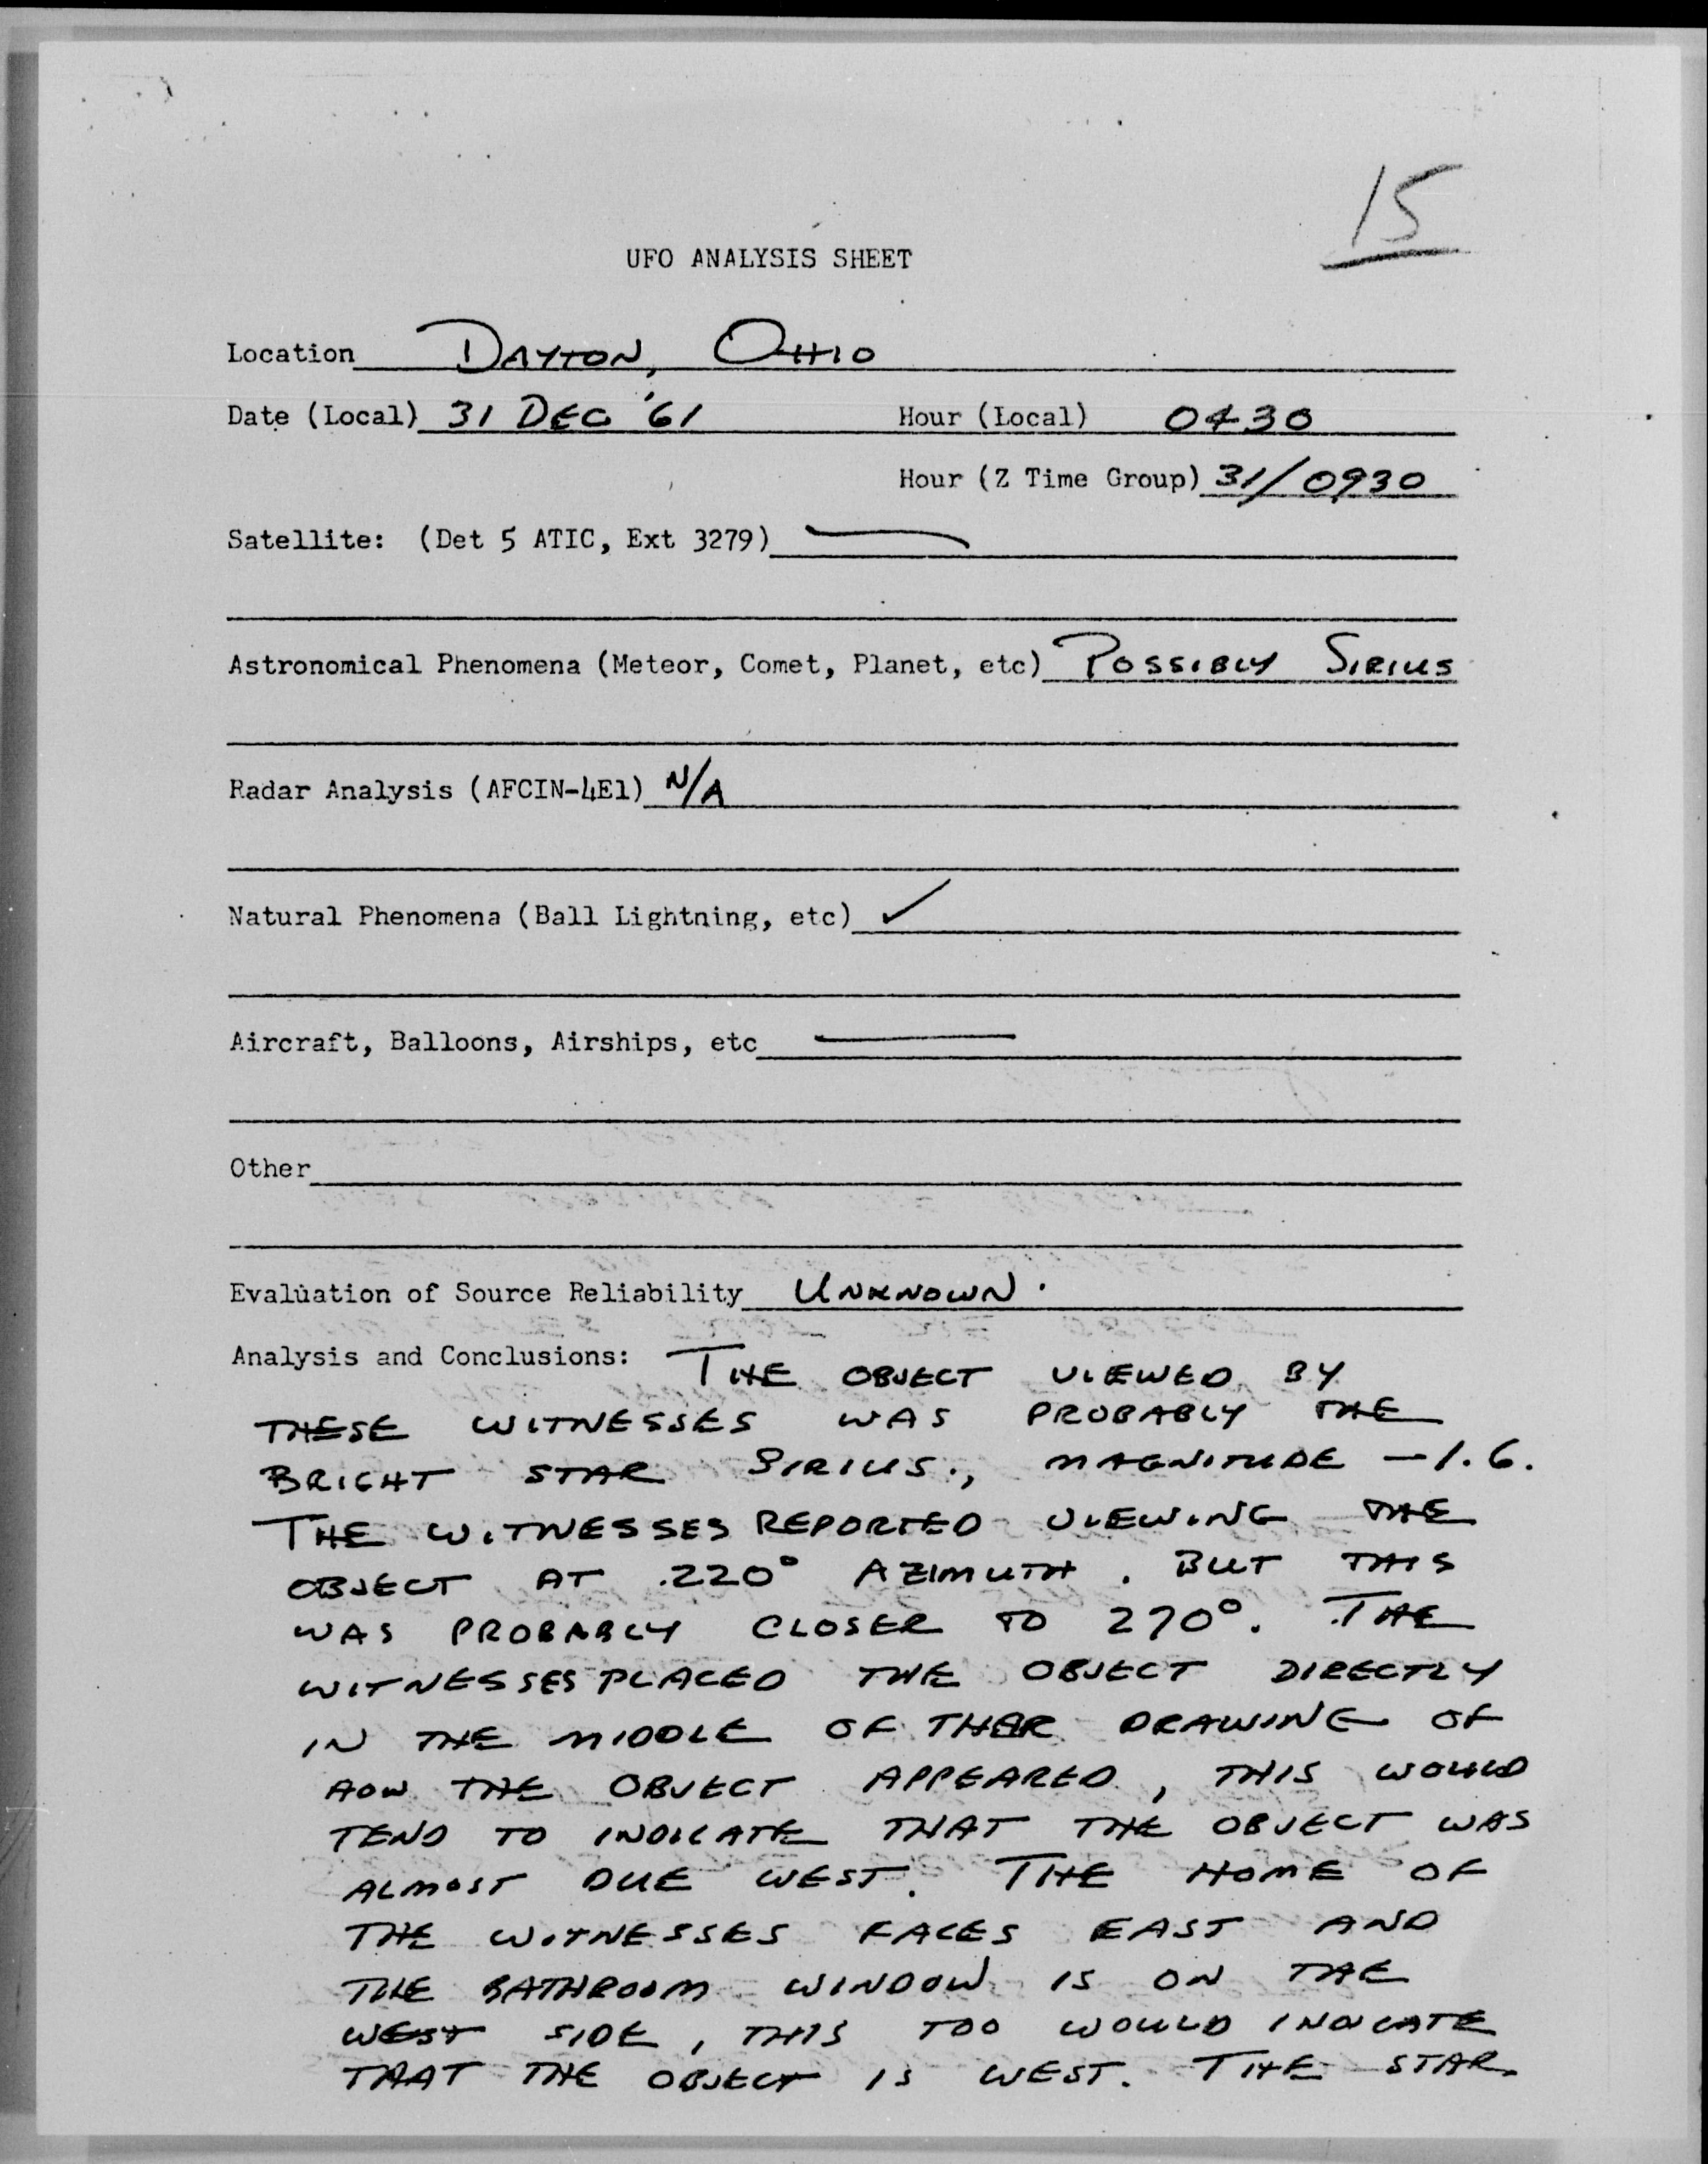 15
UFO ANALYSIS SHEET
Location DAYTON, OHIO
Date (Local) 31 DEC '61 Hour (Local) 0430
Hour (Z Time Group) 31/0930
Satellite: (Det 5 ATIC, Ext 3279) —
Astronomical Phenomena (Meteor, Comet, Planet, etc) POSSIBLY SIRIUS
Radar Analysis (AFCIN-4E1) N/A
Natural Phenomena (Ball Lightning, etc) ✓
Aircraft, Balloons, Airships, etc —
Other
Evaluation of Source Reliability UNKNOWN.
Analysis and Conclusions: THE OBJECT VIEWED BY
THESE WITNESSES WAS PROBABLY THE
BRIGHT STAR SIRIUS., MAGNITUDE -1.6.
THE WITNESSES REPORTED VIEWING THE
OBJECT AT 220° AZIMUTH. BUT THIS
WAS PROBABLY CLOSER TO 270°. THE
WITNESSES PLACED THE OBJECT DIRECTLY
IN THE MIDDLE OF THEIR DRAWING OF
HOW THE OBJECT APPEARED, THIS WOULD
TEND TO INDICATE THAT THE OBJECT WAS
ALMOST DUE WEST. THE HOME OF
THE WITNESSES FACES EAST AND
THE BATHROOM WINDOW IS ON THE
WEST SIDE, THIS TOO WOULD INDICATE
THAT THE OBJECT IS WEST. THE STAR